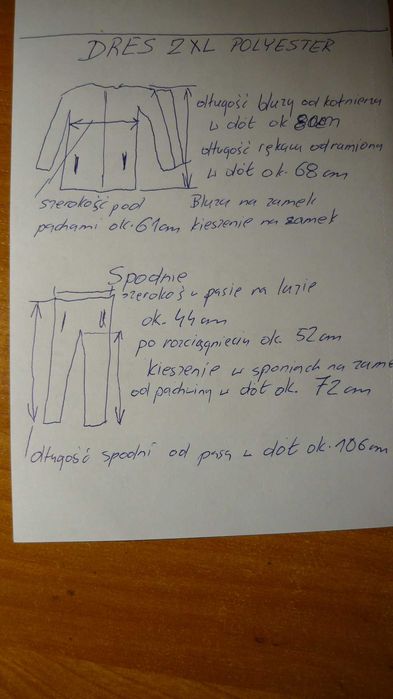 DRES 2XL POLYESTER
długość bluzy od kołnierza
w dół ok 80cm
długość rękawa od ramiona
w dół ok. 68 cm
szerokość pod
pachami ok. 61cm
Bluza na zamek
kieszenie na zamek
Spodnie
szerokość w pasie na luzie
ok. 44cm
po rozciągnięciu ok. 52cm
kieszenie w spodniach na zame
od pachwiny w dół ok. 72cm
długość spodni od pasa w dół ok. 106cm